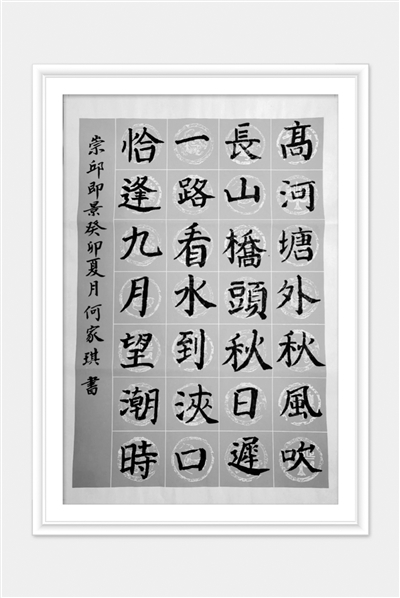 髙河塘外秋風吹
長山橋頭秋日遲
一路看水到浹口
恰逢九月望潮時
崇邱即景癸卯夏月何家琪書